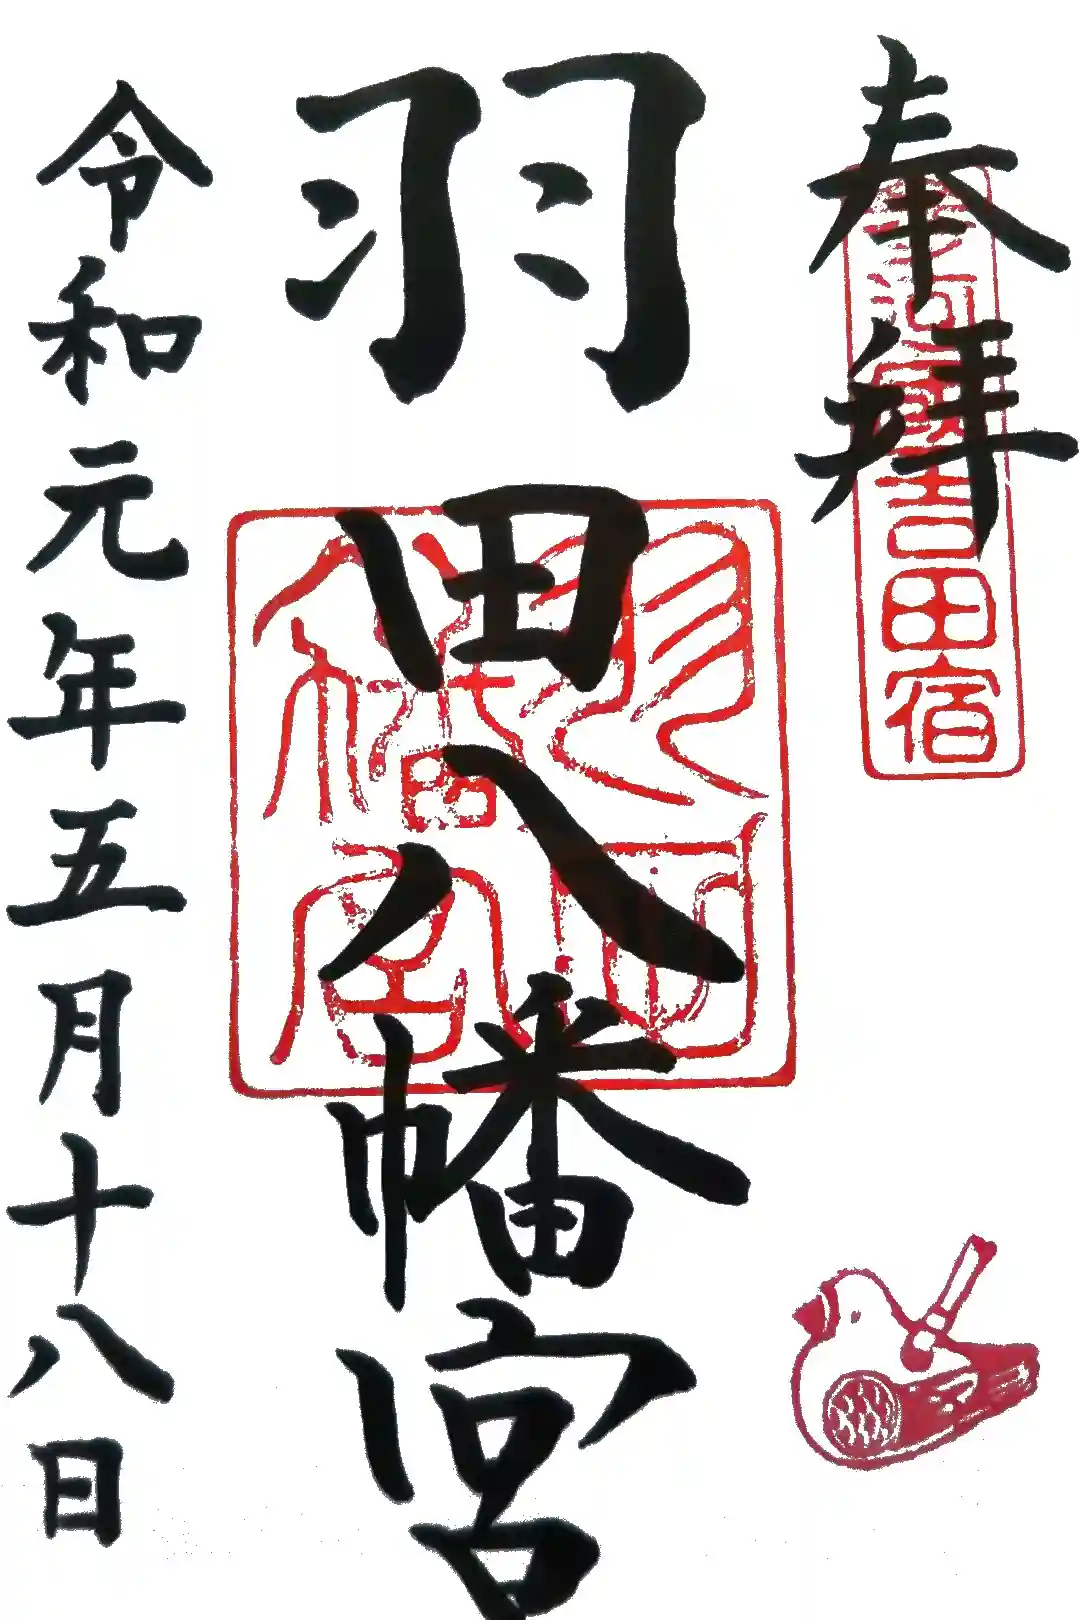 奉拝
三河國吉田宿
羽田八幡宮
羽田八幡宮
令和元年五月十八日